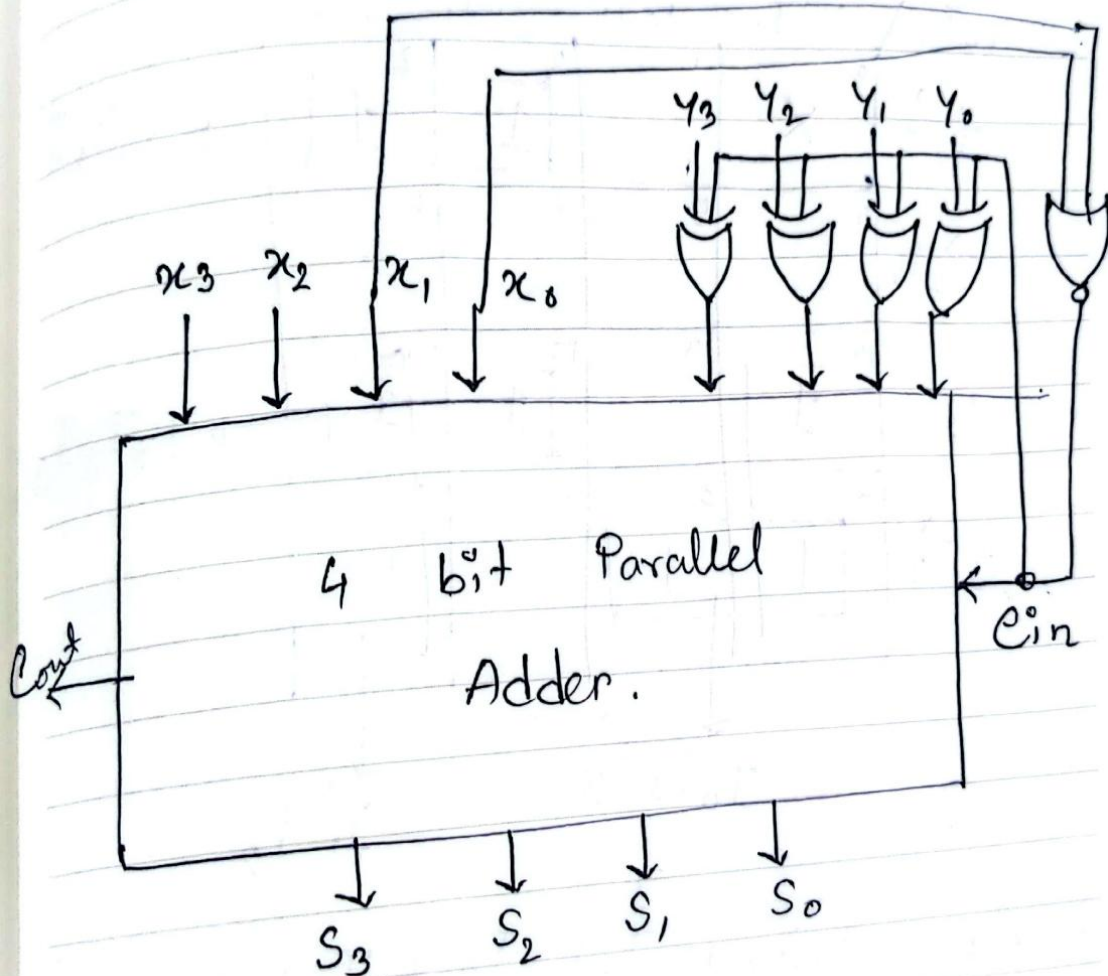 y3 y2 y1 y0
x3 x2 x1 x0
4 bit Parallel
Adder.
Cin
Cout
S3 S2 S1 S0